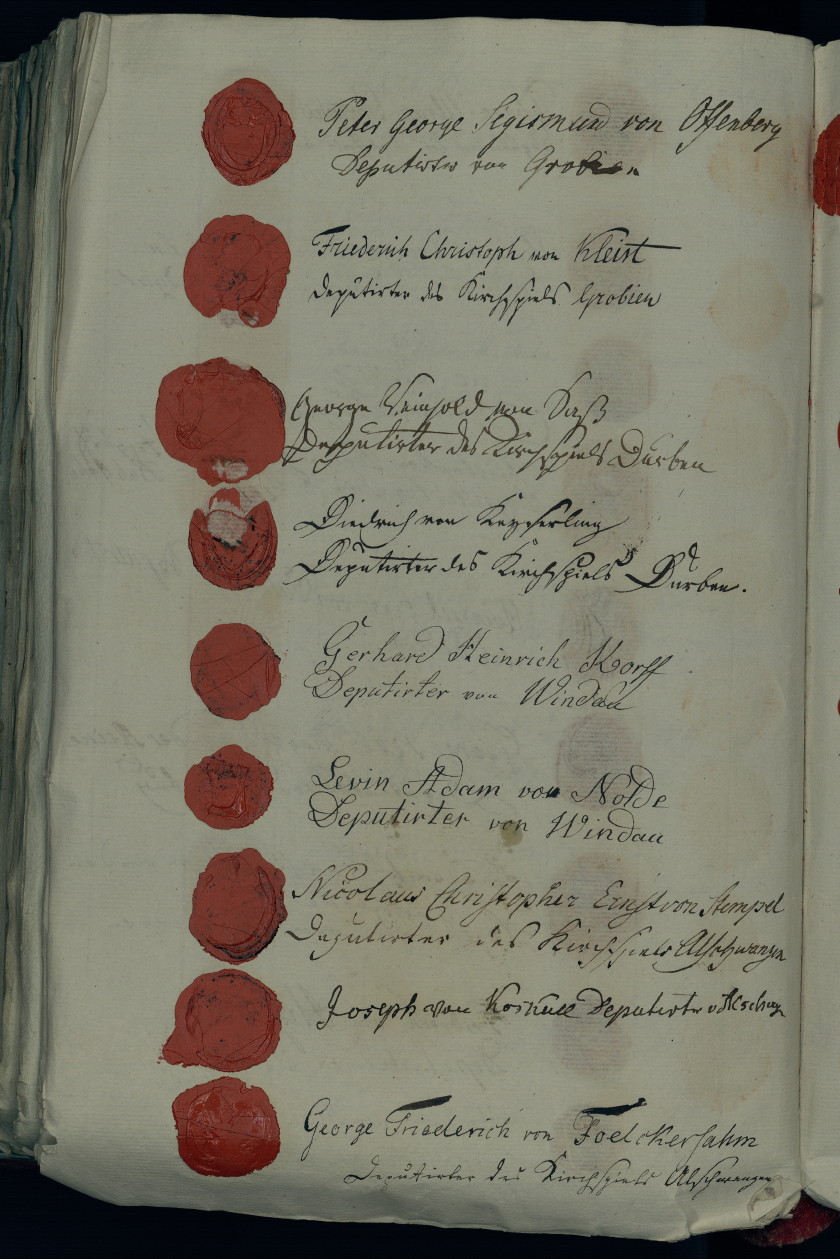 Peter George Sigismund von Offenberg
Deputirter von Grobien
Friederich Christoph von Kleist
deputirter des Kirchspiels Grobien
George Reinhold von Saß
Deputirter des Kirchspiels Durben
Diedrich von Keyserling
Deputirter des Kirchspiels Durben.
Gerhard Heinrich Korff
Deputirter von Windau
Levin Adam von Nolde
Deputirter von Windau
Nicolaus Christopher Ernst von Stempel
Deputirter des Kirchspiels Alschwangen
Joseph von Koskull Deputirter v
George Friederich von Foelckersahm
Deputirter des Kirchspiels Alschwangen